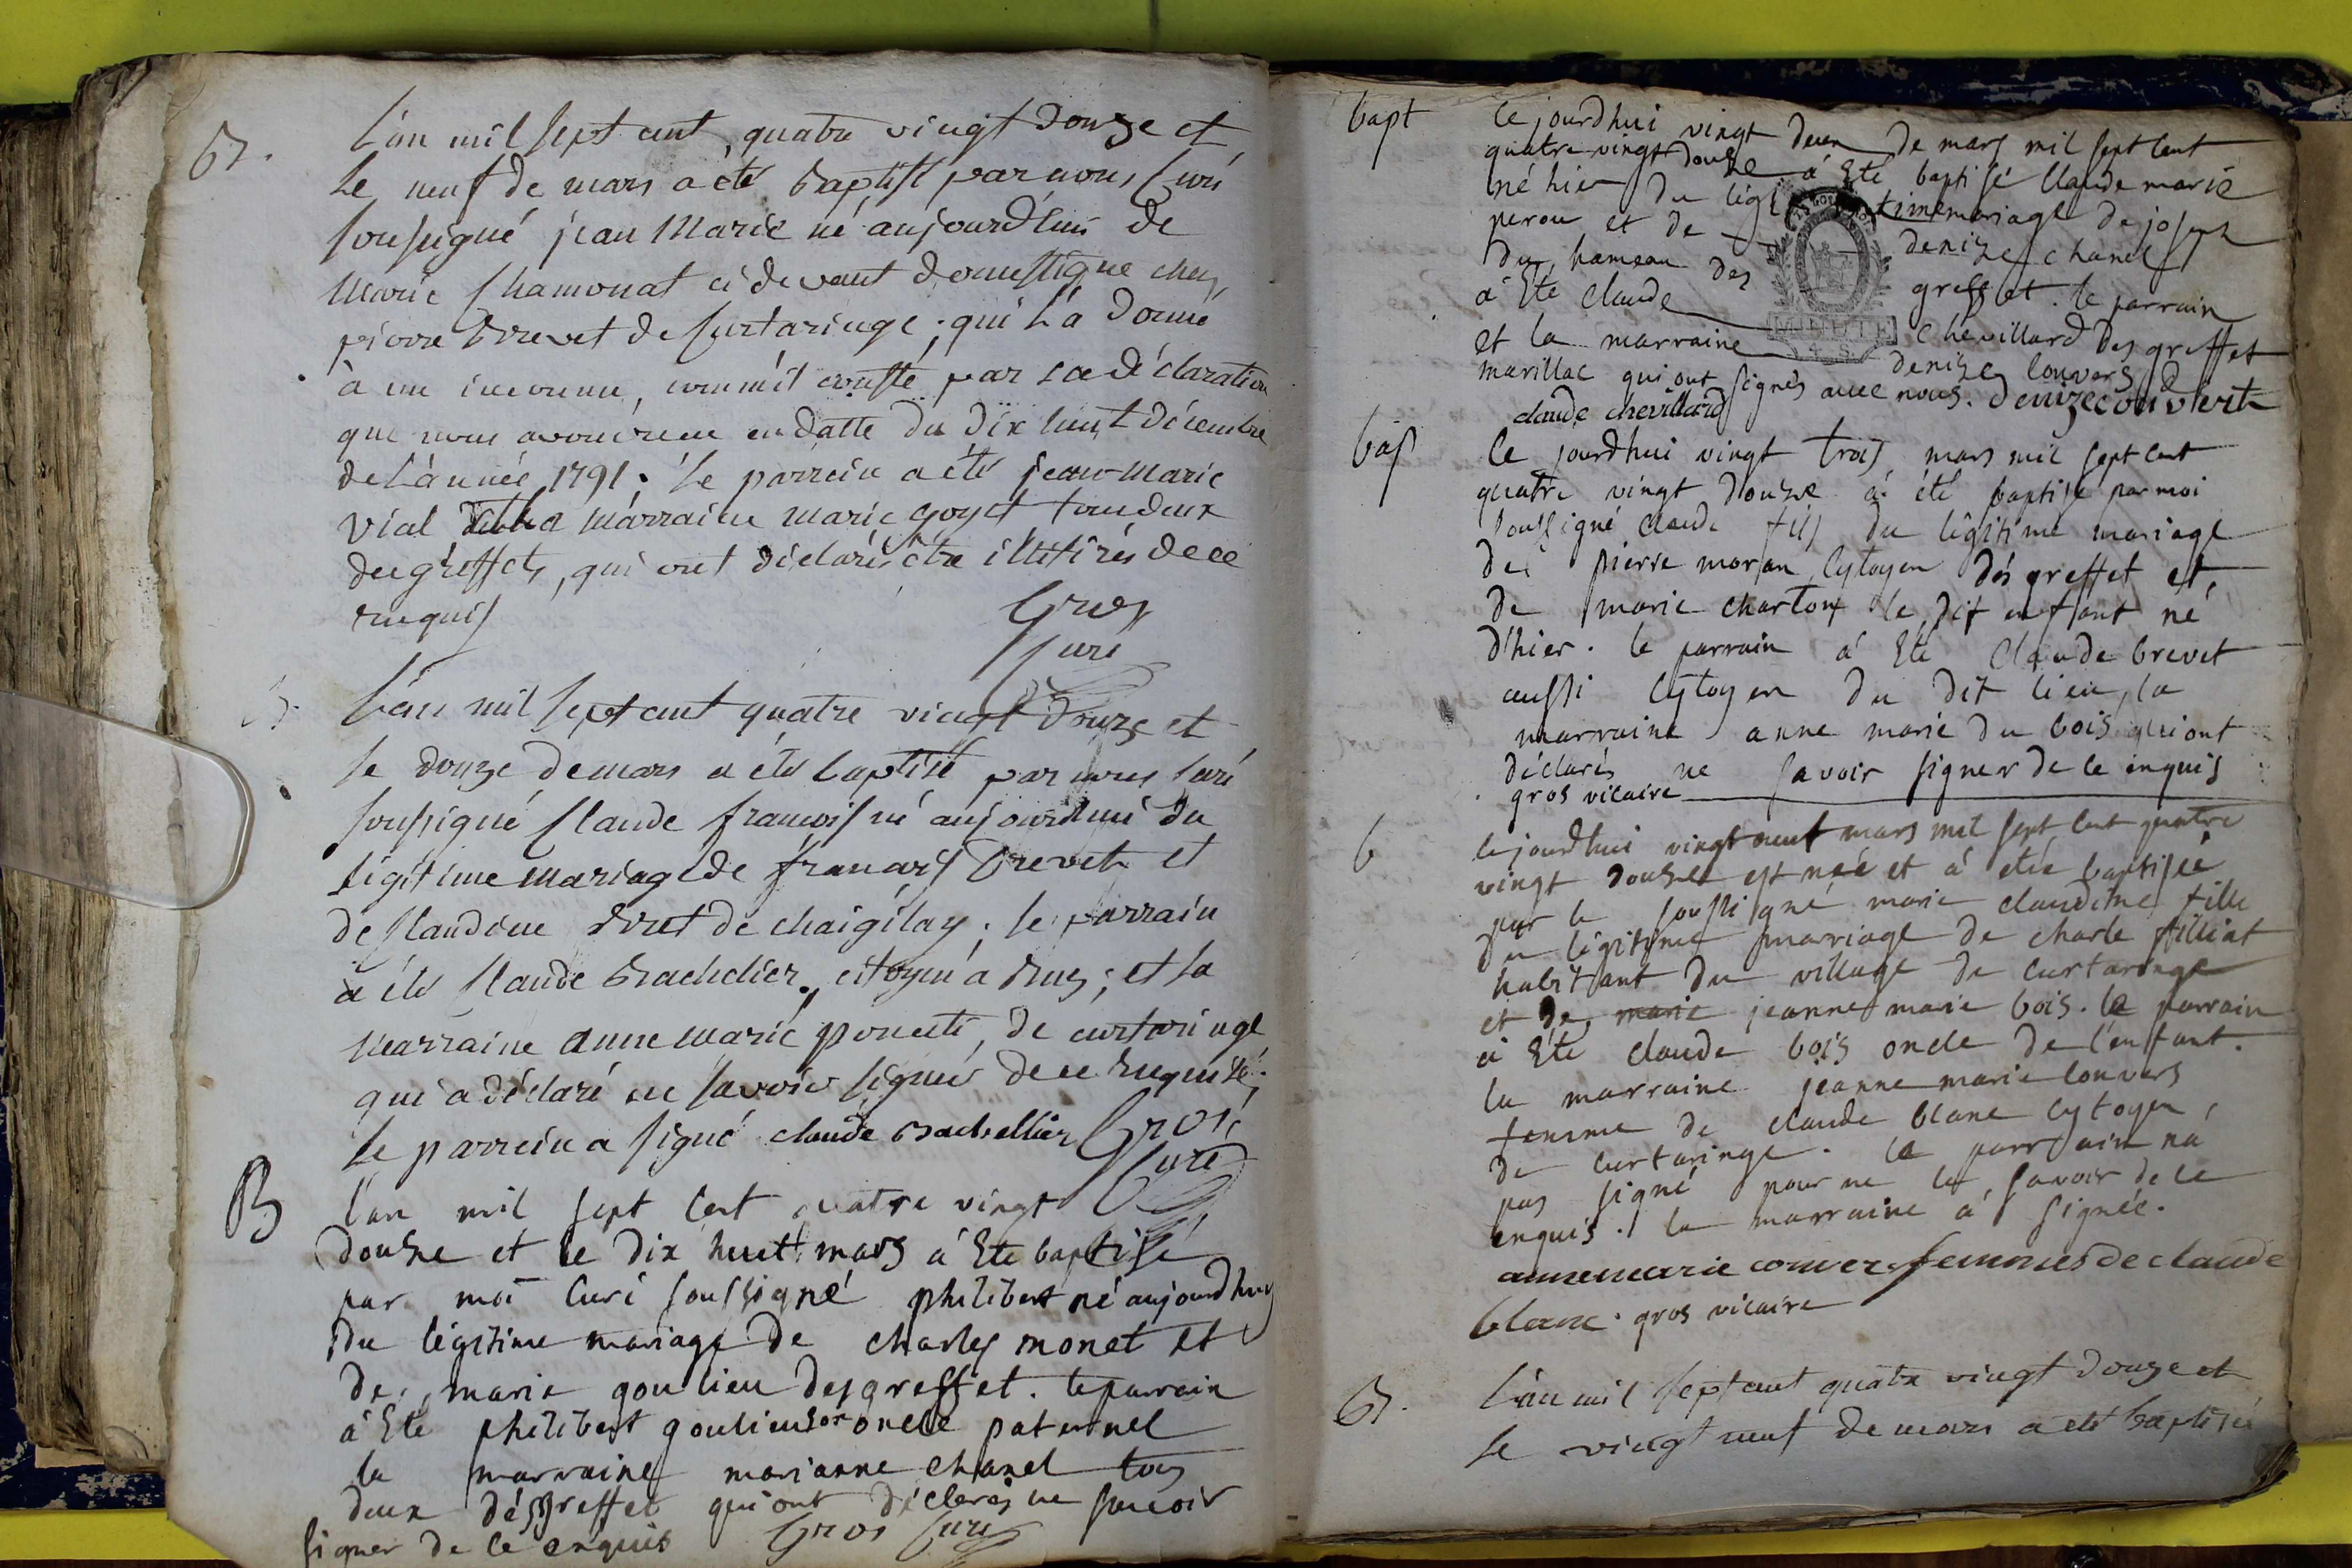 B.
L'an mil sept cent quatre vingt douze et
le neuf de mars a été baptisé par nous Curé
soussigné jean Marie né aujourdhui de
Marie Chamonat ci devant domestique chez
pierre Brevet de Curtaringe ; qui l'a donné
à un inconnu, comm'il conste par sa déclaration
que nous avons reçue en datte du dix huit décembre
de l'année 1791. Le parrein a été jean-Marie
vial et la marraine marie goyet tous deux
des greffets, qui ont déclarés être illitirés de ce
enquis
Gros
Curé
B.
L'an mil sept cent quatre vingt douze et
le douze de mars a été baptisé par nous Curé
soussigné Claude francois né aujourdhui du
légitime mariage de francois Brevet et
de Claudine de chaigilay ; le parrain
a été Claude Bachelier citoyen a ; et la
marraine anne marie poncet, de curtaringe
qui a déclaré ne savoir signer de ce enquise.
le parrein a signé claude Bachellier Gros
Curé
B
L'an mil sept cent quatre vingt
douze et le dix huit mars a été baptisé
par moi Curé soussigné philibert né aujourdhuy
du légitime mariage de charles monet et
de marie goulieu des greffet. le parrain
a été philibert goulieu son oncle paternel
la marraine marianne chanel tous
deux des greffet qui ont déclarés ne savoir
signer de ce enquis Gros Curé
bapt
Ce jourdhui vingt deux de mars mil sept cent
quatre vingt douze a été baptisé Claude marie
né hier du légitime mariage de joseph
perou et de denize chanel
du hameau des greffet. le parrain
a été Claude Chevillard des greffet
et la marraine denize Couvers de
marillac qui ont signés avec nous. denize couvert
claude chevillard
bap
Ce jourdhui vingt trois mars mil sept cent
quatre vingt douze a été baptisé par moi
soussigné Claude fils du légitime mariage
de pierre moran Cytoyen des greffet et
de marie charton le dit enfant né
d'hier. le parrain a été Claude brevet
aussi Cytoyen du dit lieu, la
marraine anne marie du bois qui ont
déclarés ne savoir signer de ce enquis
gros vicaire
b
Ce jourdhui vingt neuf mars mil sept cent quatre
vingt douze est née et a étée baptisée
par le soussigné marie claudine fille
du légitime mariage de charle filliat
habitant du village de curtaringe
et de marie jeanne marie bois. le parrain
a été claude bois oncle de l'enfant.
la marraine jeanne marie Couvers
femme de claude blanc cytoyen,
de curtaringe. le parrain na
pas signé pour ne le savoir de ce
enquis. la marraine a signée.
annemarie conver femmes de claude
blanc. gros vicaire
B.
L'an mil sept cent quatre vingt douze et
le vingt neuf de mars a été baptisé